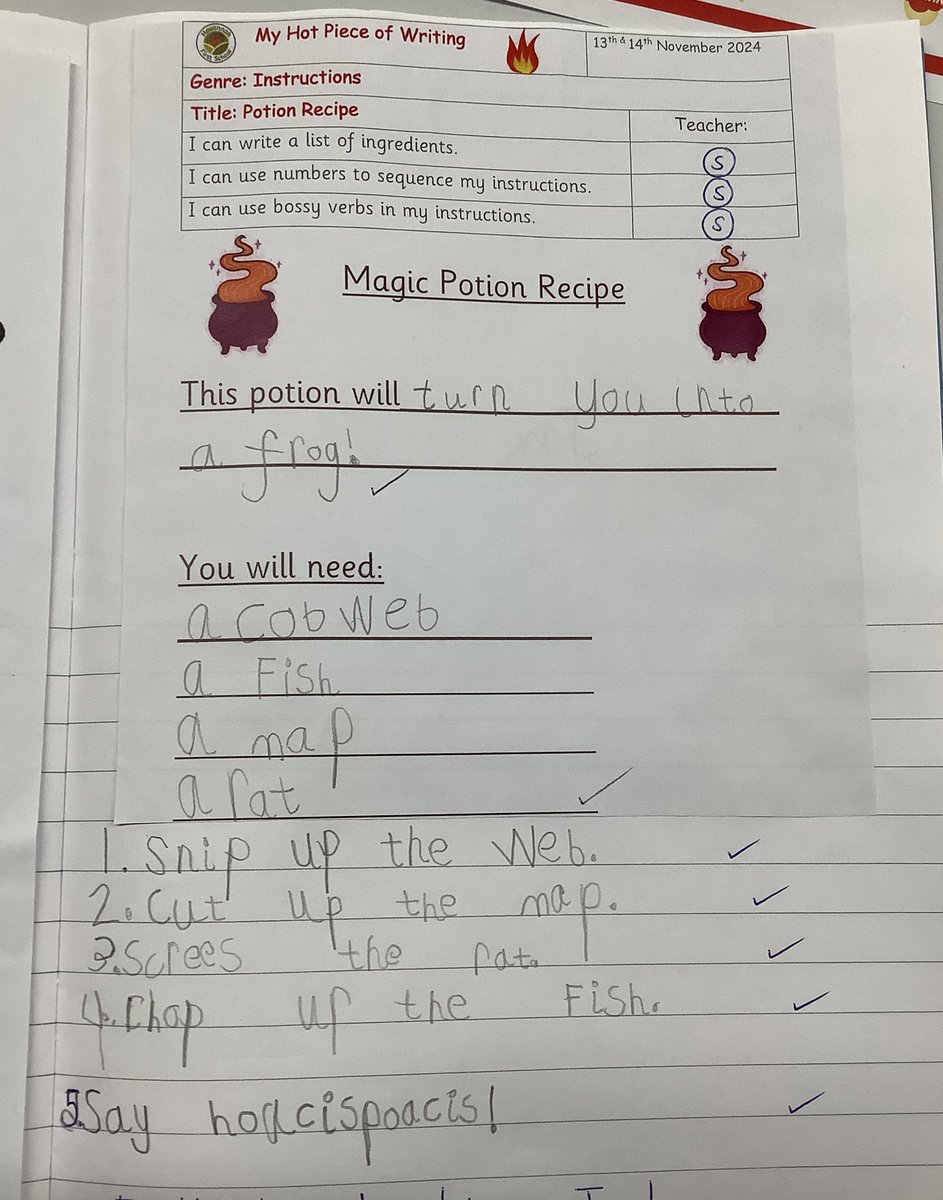 My Hot Piece of Writing
13th & 14th November 2024
Genre: Instructions
Title: Potion Recipe
Teacher:
I can write a list of ingredients.
S
I can use numbers to sequence my instructions.
S
I can use bossy verbs in my instructions.
S
Magic Potion Recipe
This potion will turn you into
a frog!
You will need:
a cobweb
a Fish
a map
a rat
1. Snip up the Web.
2. Cut up the map.
3. Screes the rat.
4. Chop up the Fish.
5. Say hodcispoacis!